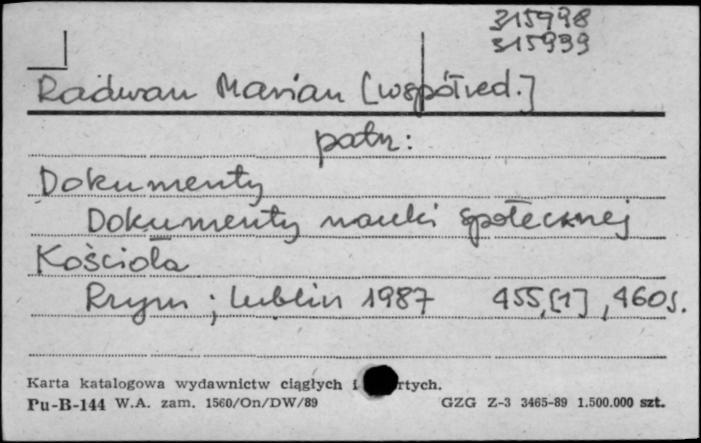 315998
315999
Radwan Marian [współred.]
patrz:
Dokumenty
Dokumenty nauki społecznej
Kościoła
Rzym ; Lublin 1987 455,[1] ,460s.
Karta katalogowa wydawnictw ciągłych i rtych.
Pu-B-144 W.A. zam. 1560/On/DW/89 GZG Z-3 3465-89 1.500.000 szt.